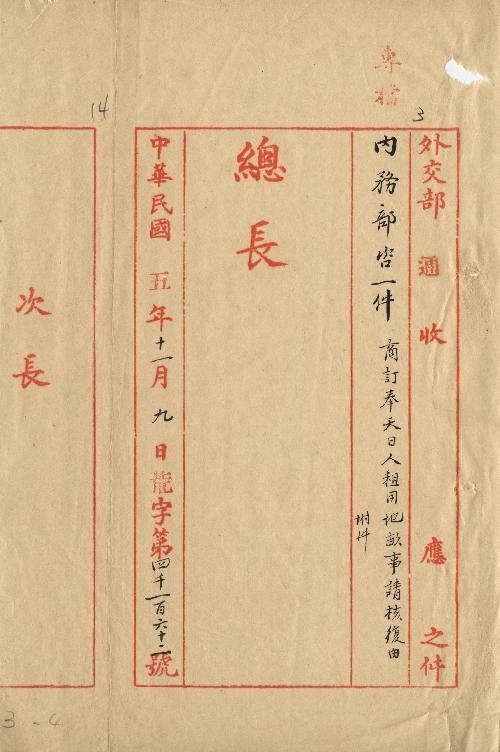 專檔
3
外交部 通 收 應 之件
內務部咨一件 商訂奉天日人租用地畝事請核復由
附件
總長
中華民國 五年十一月 九 日 龍字第四千一百六十二號
14
次長
3-4